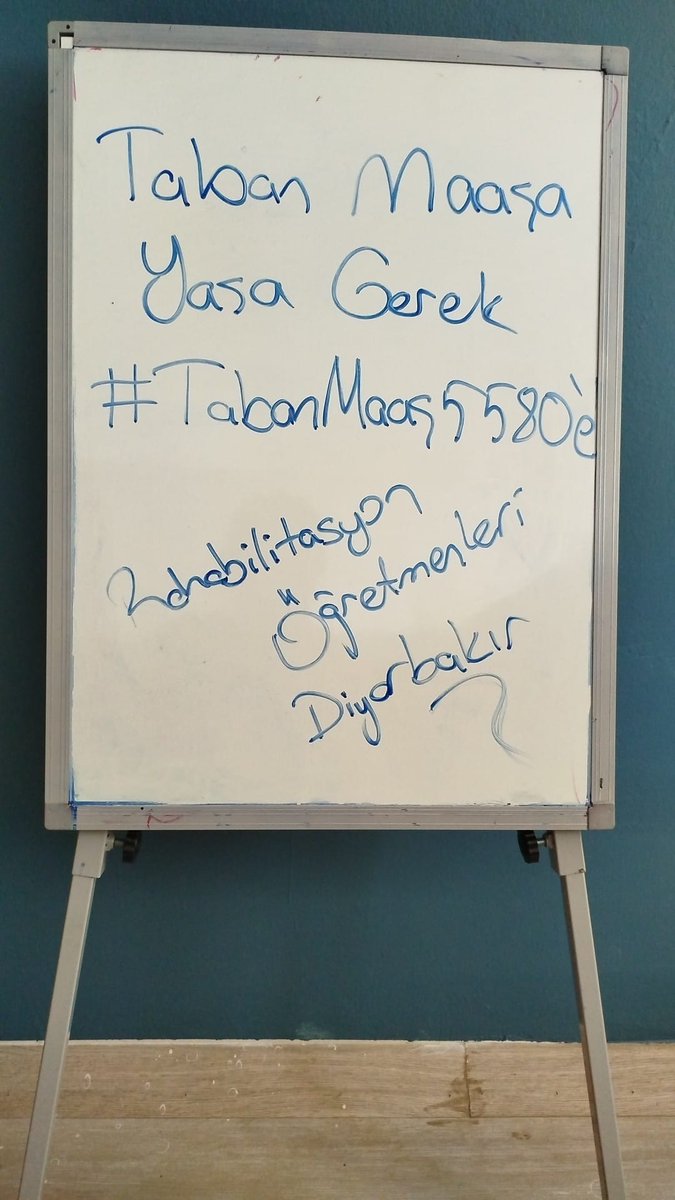 Taban Maaşa
Yasa Gerek
#TabanMaaş5580'e
Rehabilitasyon
Öğretmenleri
Diyarbakır